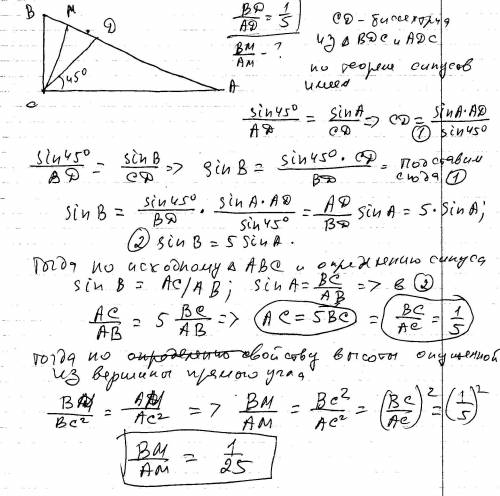 B M D
45°
C A
BD/AD = 1/5
BM/AM - ?
CD - биссектриса
из Δ BDC и ADC
по теореме синусов
имеем
sin45°/AD = sinA/CD => CD = sinA·AD/sin45° ①
sin45°/BD = sinB/CD => sinB = sin45°·CD/BD = подставим сюда ①
sinB = sin45°/BD · sinA·AD/sin45° = AD/BD sinA = 5·sinA;
② sinB = 5 sinA.
Тогда по исходному Δ ABC и определению синуса
sin B = AC/AB; sinA = BC/AB => в ②
AC/AB = 5 BC/AB => AC = 5BC = BC/AC = 1/5
тогда по свойству высоты опущенной
из вершины прямого угла
BM/BC² = AM/AC² => BM/AM = BC²/AC² = (BC/AC)² = (1/5)²
BM/AM = 1/25